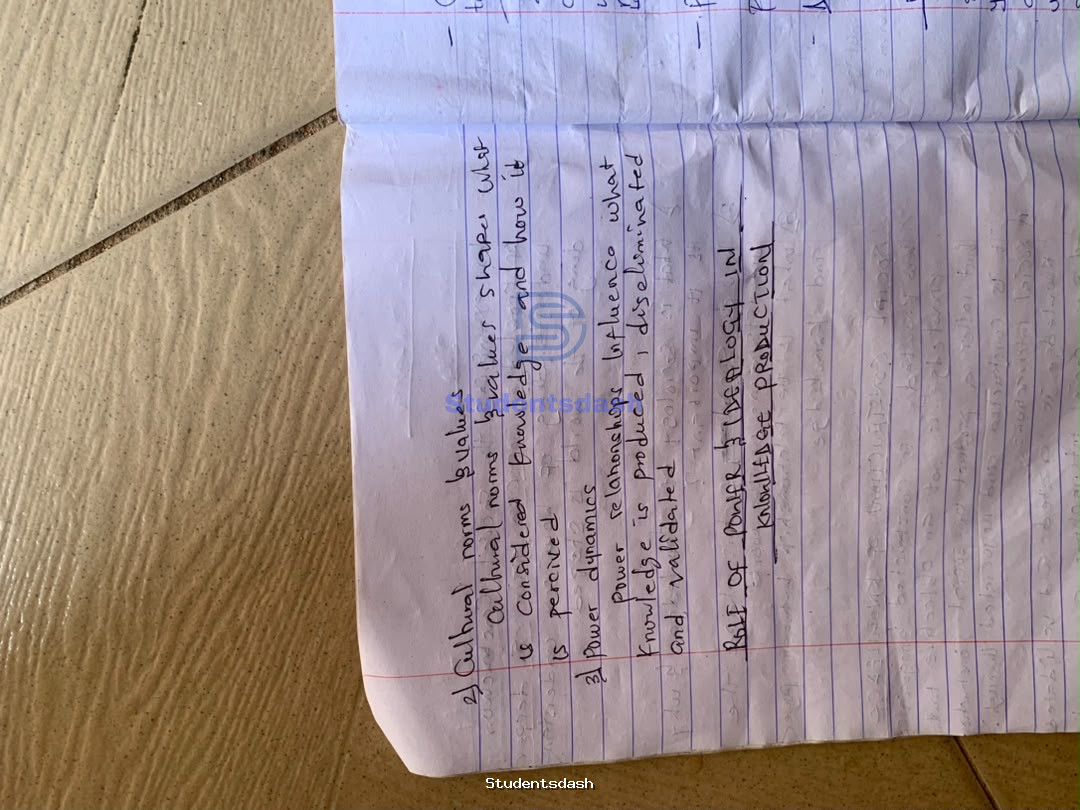 2) Cultural norms & values
Cultural norms & values shapes what
is considered knowledge and how it
is percived
3) Power dynamics
power relationshops influence what
knowledge is produced, diseliminated
and validated
ROLE OF POWER & IDEALOGY IN
KNOWLEDGE PRODUCTION
Studentsdash
Studentsdash